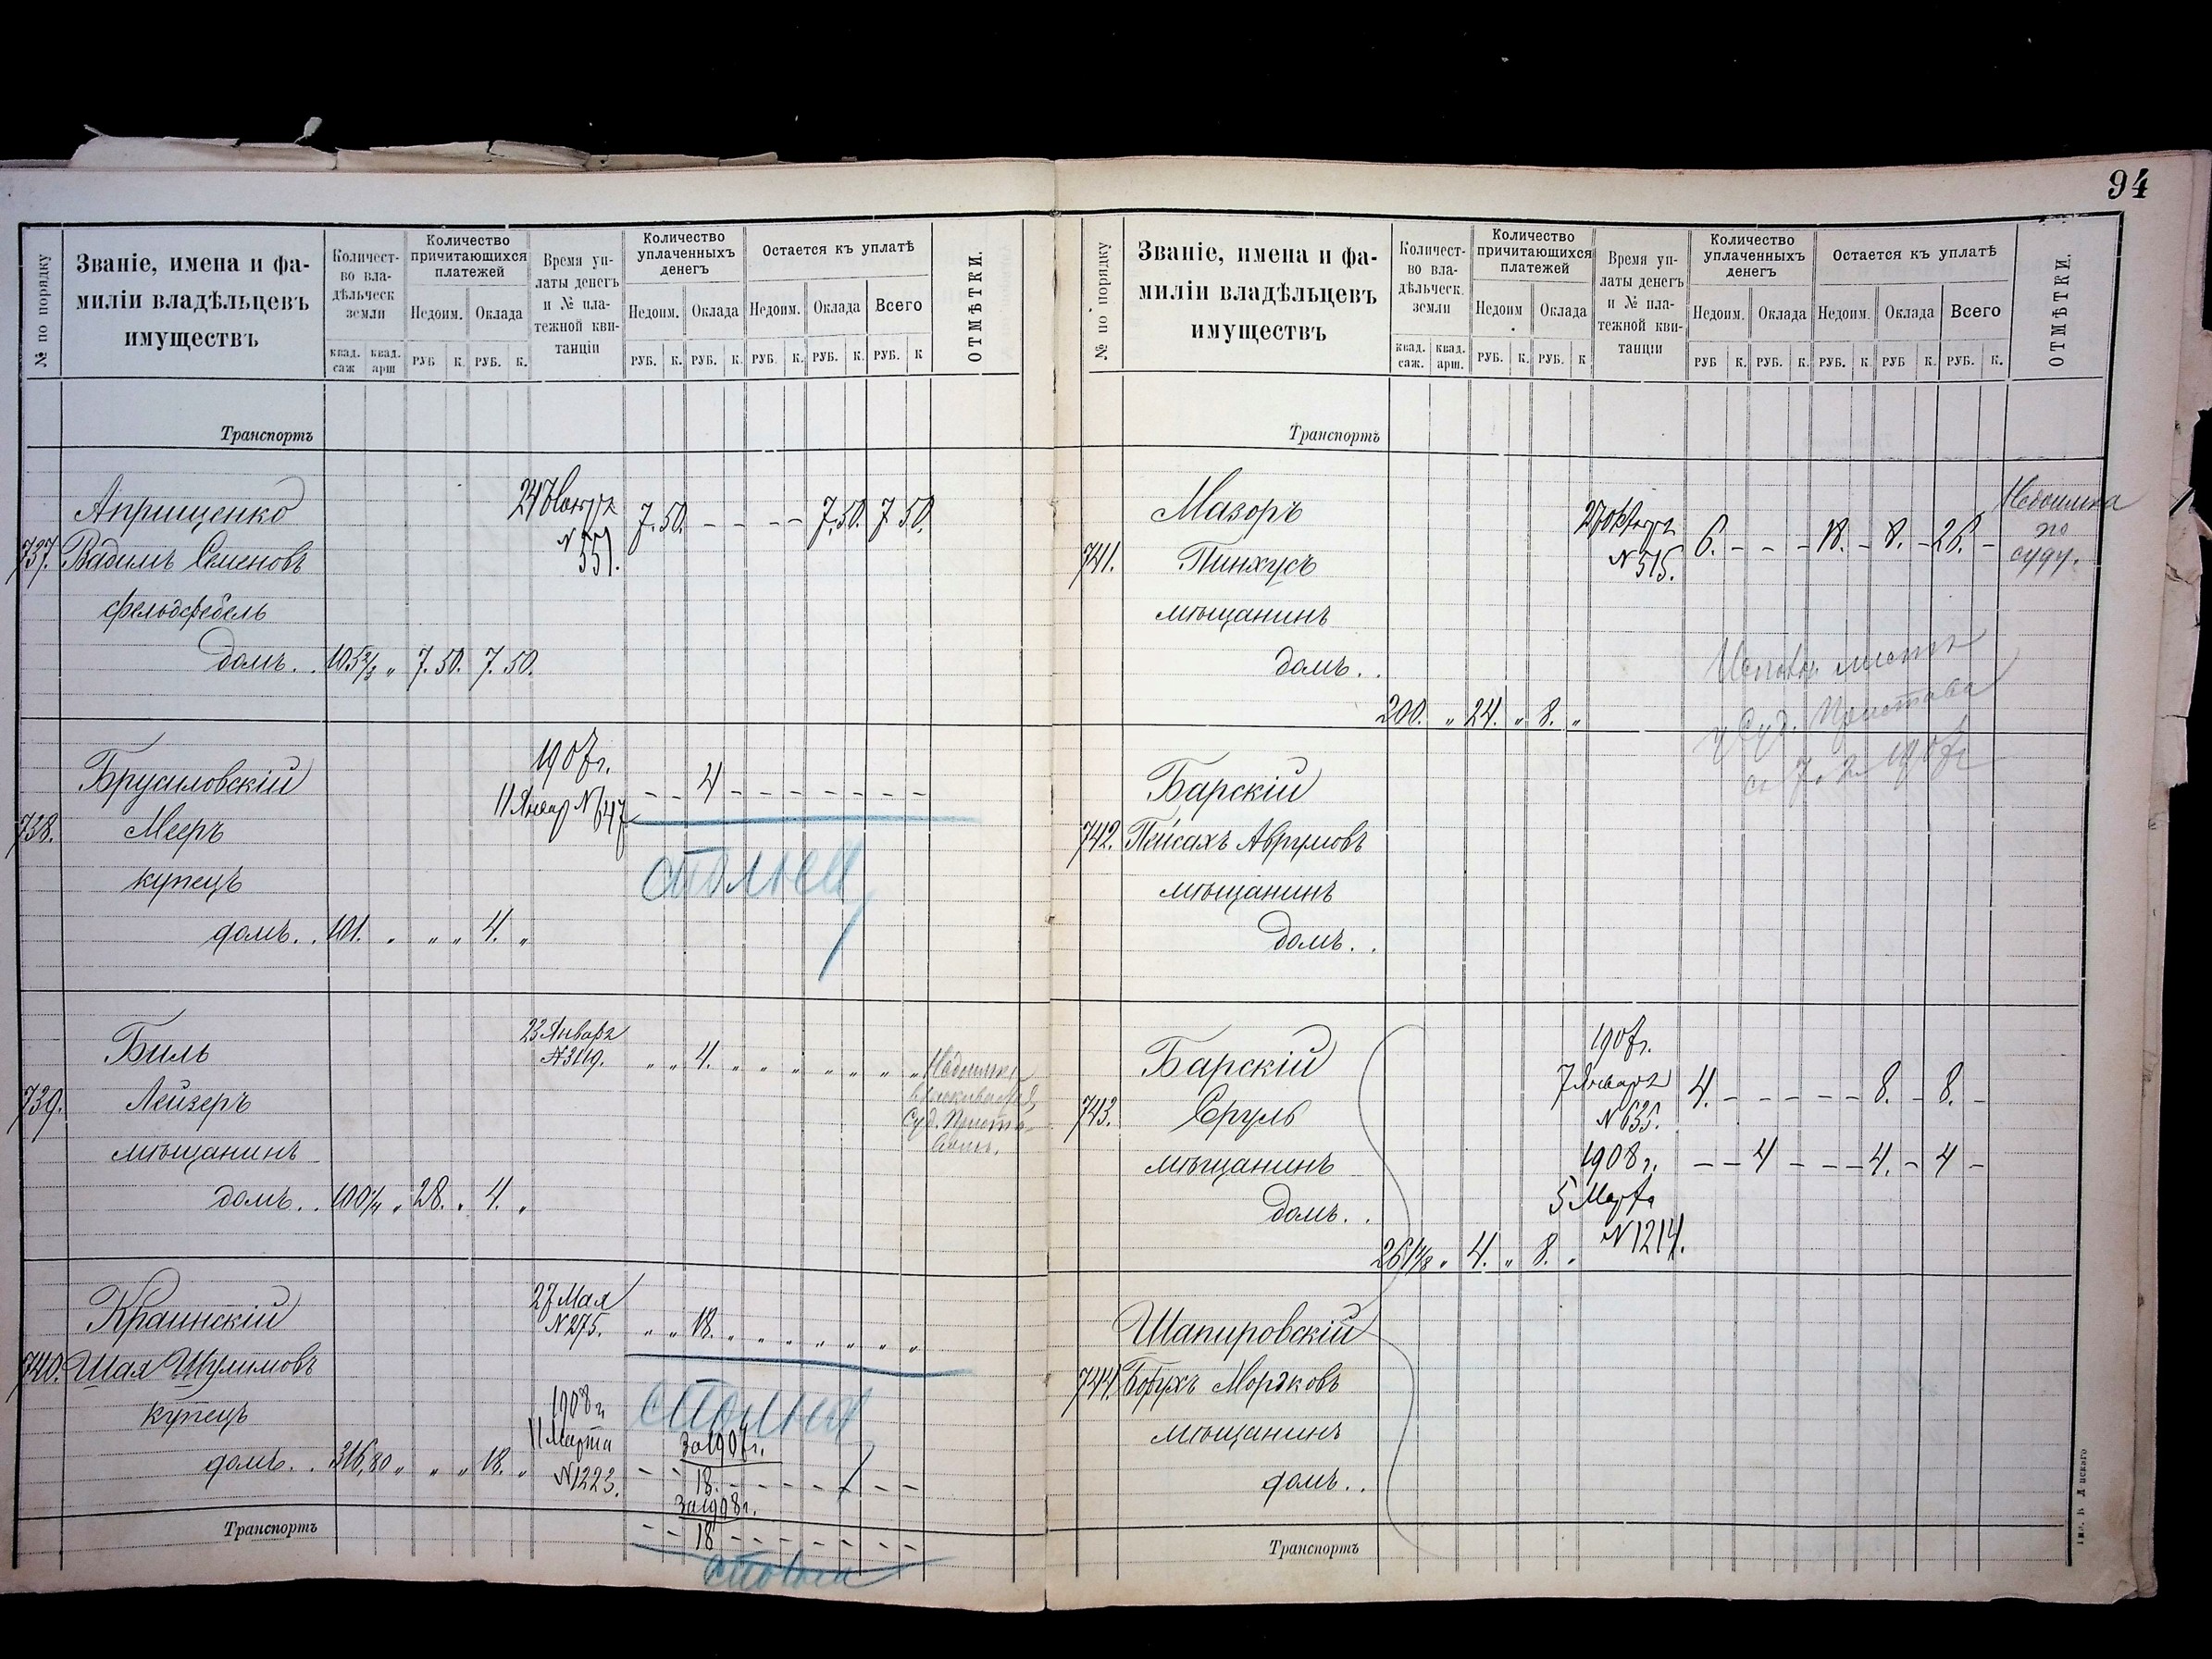 94
№ по порядку
Званіе, имена и фа-
миліи владѣльцевъ
имуществъ
Количест-
во вла-
дѣльческ
земли
квад. саж
квад. арш
Количество
причитающихся
платежей
Недоим. Оклада
РУБ К. РУБ. К.
Время уп-
латы денегъ
и № пла-
тежной кви-
танціи
Количество
уплаченныхъ
денегъ
Недоим. Оклада
РУБ. К. РУБ. К.
Остается къ уплатѣ
Недоим. Оклада Всего
РУБ. К. РУБ. К. РУБ. К
ОТМѢТКИ.
Транспортъ
Априщенко
737. Вадимъ Семеновъ
фельдфебель
домъ. . 105 2/3 „ 7. 50. 7. 50.
N 551.
7. 50. – – – – 7. 50. 7 50.
Брусиловскій
738. Мееръ
купецъ
домъ. . 101. „ „ „ 4. „
1907 г.
11 Январ N 647
– – 4 – – – – – – –
Биль
739. Лейзеръ
мѣщанинъ
домъ. . 100 1/4 „ 28. „ 4. „
23 Января
N 3119.
„ „ 4. „ „ „ „ „ „ „
Недоимка
Суд. Приста-
вомъ.
Краинскій
740. Шая Шулимовъ
купецъ
домъ. . 316,80 „ „ „ 18. „
27 Мая
N 275.
„ „ 18. „ „ „ „ „ „ „
1908 г.
11 Марта
N 1223.
За 1907 г.
– – 18. – – – – – –
За 1908 г.
– – 18 – – – – – – –
Транспортъ
№ по порядку
Званіе, имена и фа-
миліи владѣльцевъ
имуществъ
Количест-
во вла-
дѣльческ.
земли
квад. саж.
квад. арш.
Количество
причитающихся
платежей
Недоим Оклада
РУБ. К. РУБ. К
Время уп-
латы денегъ
и № пла-
тежной кви-
танціи
Количество
уплаченныхъ
денегъ
Недоим. Оклада
РУБ К. РУБ. К.
Остается къ уплатѣ
Недоим. Оклада Всего
РУБ. К РУБ К. РУБ. К.
ОТМѢТКИ.
Транспортъ
Мазоръ
741. Пинхусъ
мѣщанинъ
домъ. .
200. „ 24. „ 8. „
N 515.
6. – – – 18. – 8. – 26. –
Недоимка
по
суду.
листъ
у Суд. Пристава
1907 г
Барскій
742. Пейсахъ Аврумовъ
мѣщанинъ
домъ. .
Барскій
743. Сруль
мѣщанинъ
домъ. .
261 1/3 „ 4. „ 8. „
1907 г.
7 Января
N 635.
4. – – – – – 8. – 8. –
1908 г.
5 Марта
N 1214.
– – 4 – – – 4. – 4 –
Шапировскій
744. Борухъ Мордковъ
мѣщанинъ
домъ. .
Транспортъ